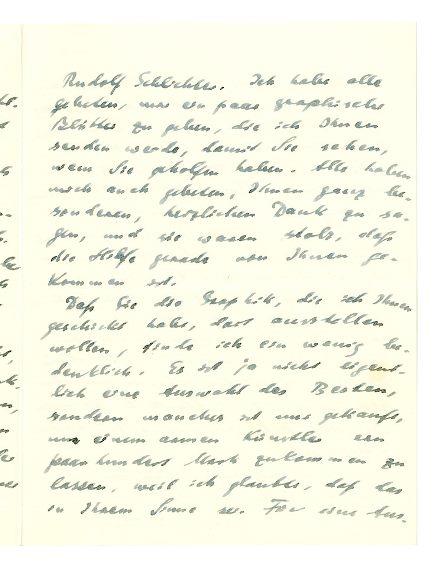 Rudolf Schlichter. Ich habe alle
gebeten, mir ein paar graphische
Blätter zu geben, die ich Ihnen
senden werde, damit Sie sehen,
wem Sie geholfen haben. Alle haben
mich auch gebeten, Ihnen ganz be-
sonderen, herzlichen Dank zu sa-
gen, und sie waren stolz, daß
die Hilfe gerade von Ihnen ge-
kommen ist.
Daß Sie die Graphik, die ich Ihnen
geschickt habe, dort ausstellen
wollen, finde ich ein wenig be-
denklich. Es ist ja nicht eigent-
lich eine Auswahl des Besten,
sondern manches ist nur gekauft,
um einem armen Künstler ein
paar hundert Mark zukommen zu
lassen, weil ich glaubte, daß das
in Ihrem Sinne sei. Für eine Aus-